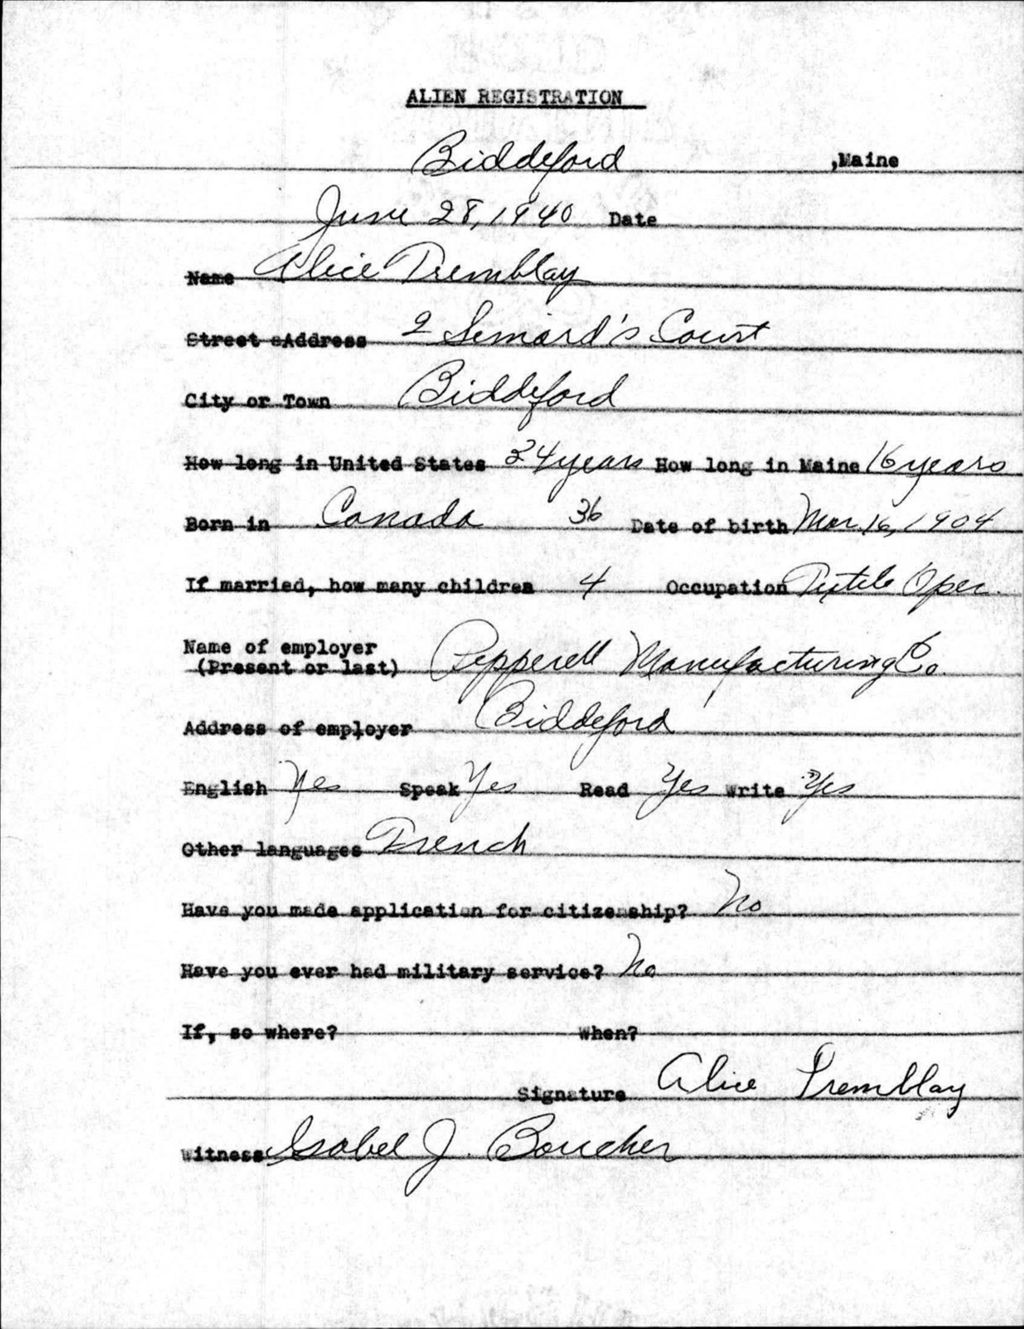 ALIEN REGISTRATION
Biddeford ,Maine
June 28, 1940 Date
Name Alice Tremblay
Street Address 2 Simard's Court
City or Town Biddeford
How long in United States 34 years How long in Maine 16 years
Born in Canada 36 Date of birth Mar. 16, 1904
If married, how many children 4 Occupation Textile Oper.
Name of employer
(Present or last) Pepperell Manufacturing Co.
Address of employer Biddeford
English Yes Speak Yes Read Yes Write Yes
Other languages French
Have you made application for citizenship? No
Have you ever had military service? No
If, so where? When?
Signature Alice Tremblay
Witness Isabel J. Boucher